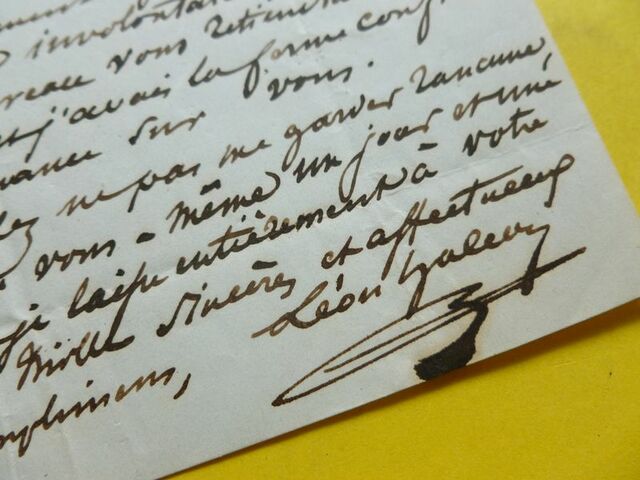 involonta
reau vous retiend
et j'avais la ferme conf
iance sur vous.
lez ne pas me garder rancune,
vous-même un jour et une
je laisse entièrement à votre
Mille sincères et affectueux
mplimens, Léon Halévy